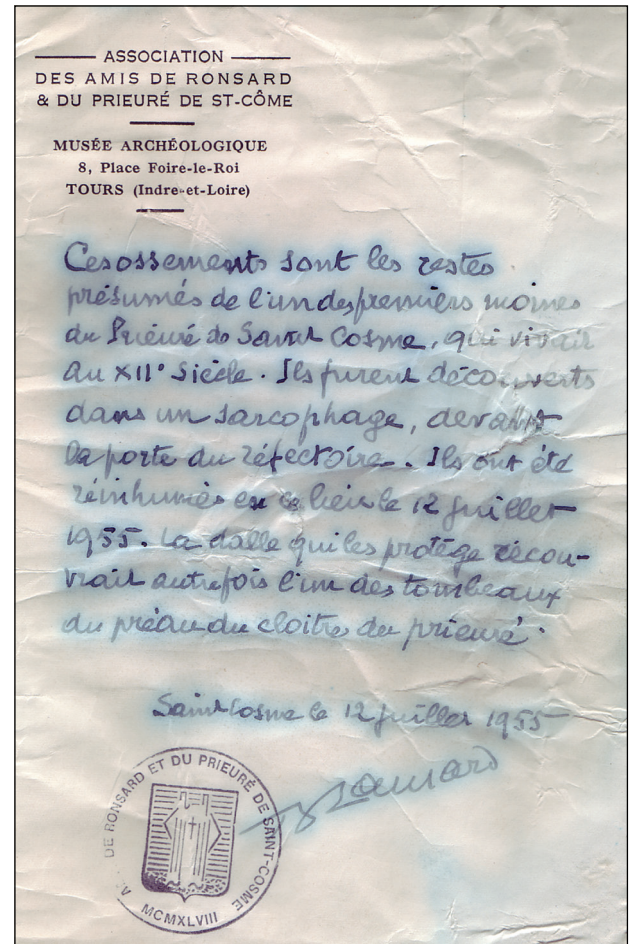 ASSOCIATION
DES AMIS DE RONSARD
& DU PRIEURÉ DE ST-CÔME
MUSÉE ARCHÉOLOGIQUE
8, Place Foire-le-Roi
TOURS (Indre-et-Loire)
Ces ossements sont les restes
présumés de l'un des premiers moines
du Prieuré de Saint Cosme, qui vivait
au XII° Siècle. Ils furent découverts
dans un sarcophage, devant
la porte du réfectoire. Ils ont été
réinhumés en ce lieu le 12 juillet
1955. La dalle qui les protège recou-
vrait autrefois l'un des tombeaux
du préau du cloître du prieuré.
Saint Cosme le 12 juillet 1955
A. DE RONSARD ET DU PRIEURÉ DE SAINT-COSME
MCMXLVIII